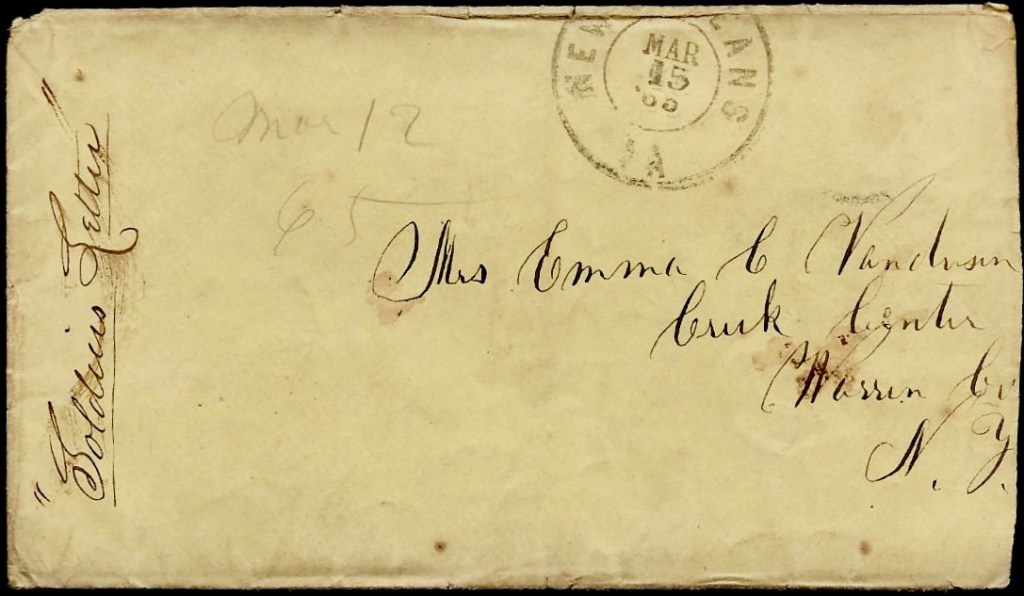 NEW ORLEANS LA
MAR
15
65
Mar 12
65
"Soldiers Letter"
Mrs Emma C Vandusen
Creek Center
Warren Co
N. Y.